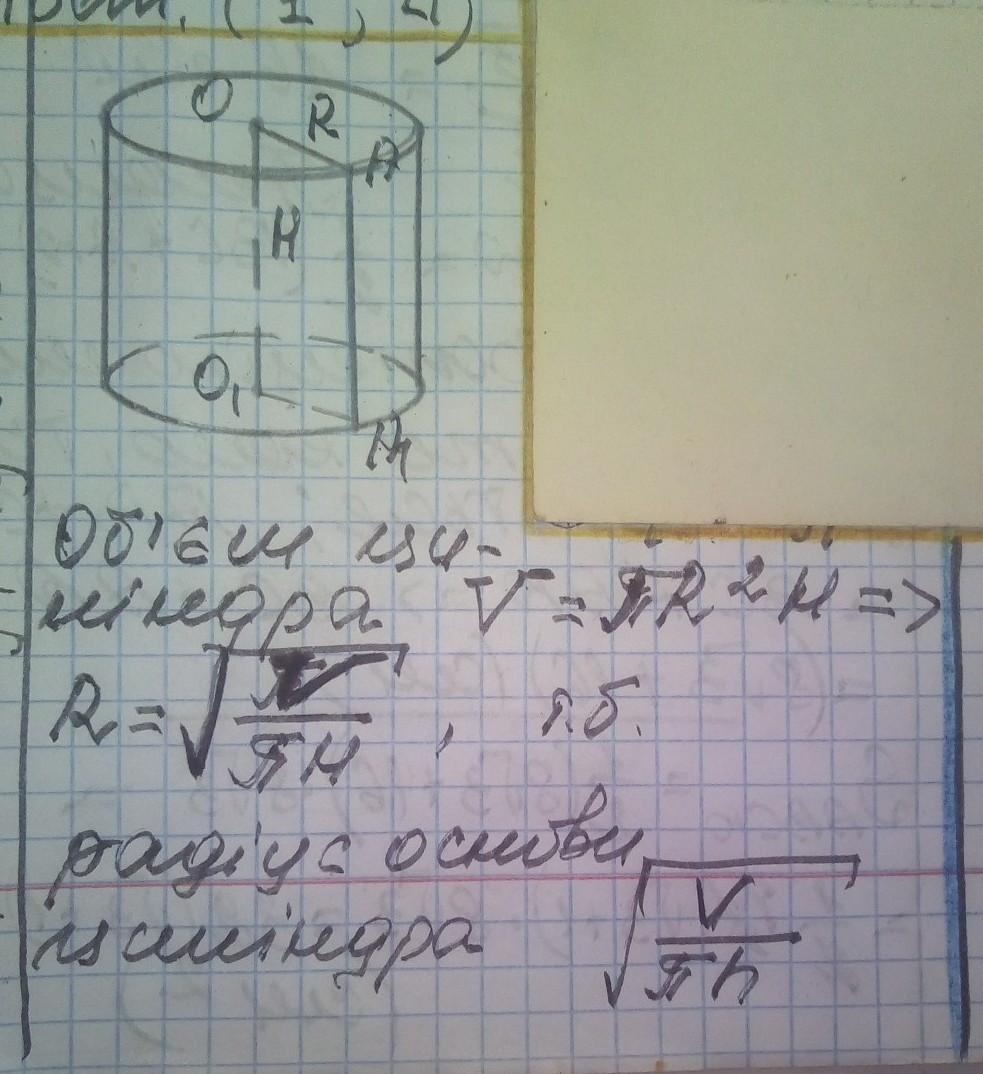 (1, 4)
O
R
A
H
O₁
A₁
Об'єм ци-
ліндра V = πR²H =>
R = √(V/(πH)), т.б.
радіус основи
циліндра √(V/(πh))